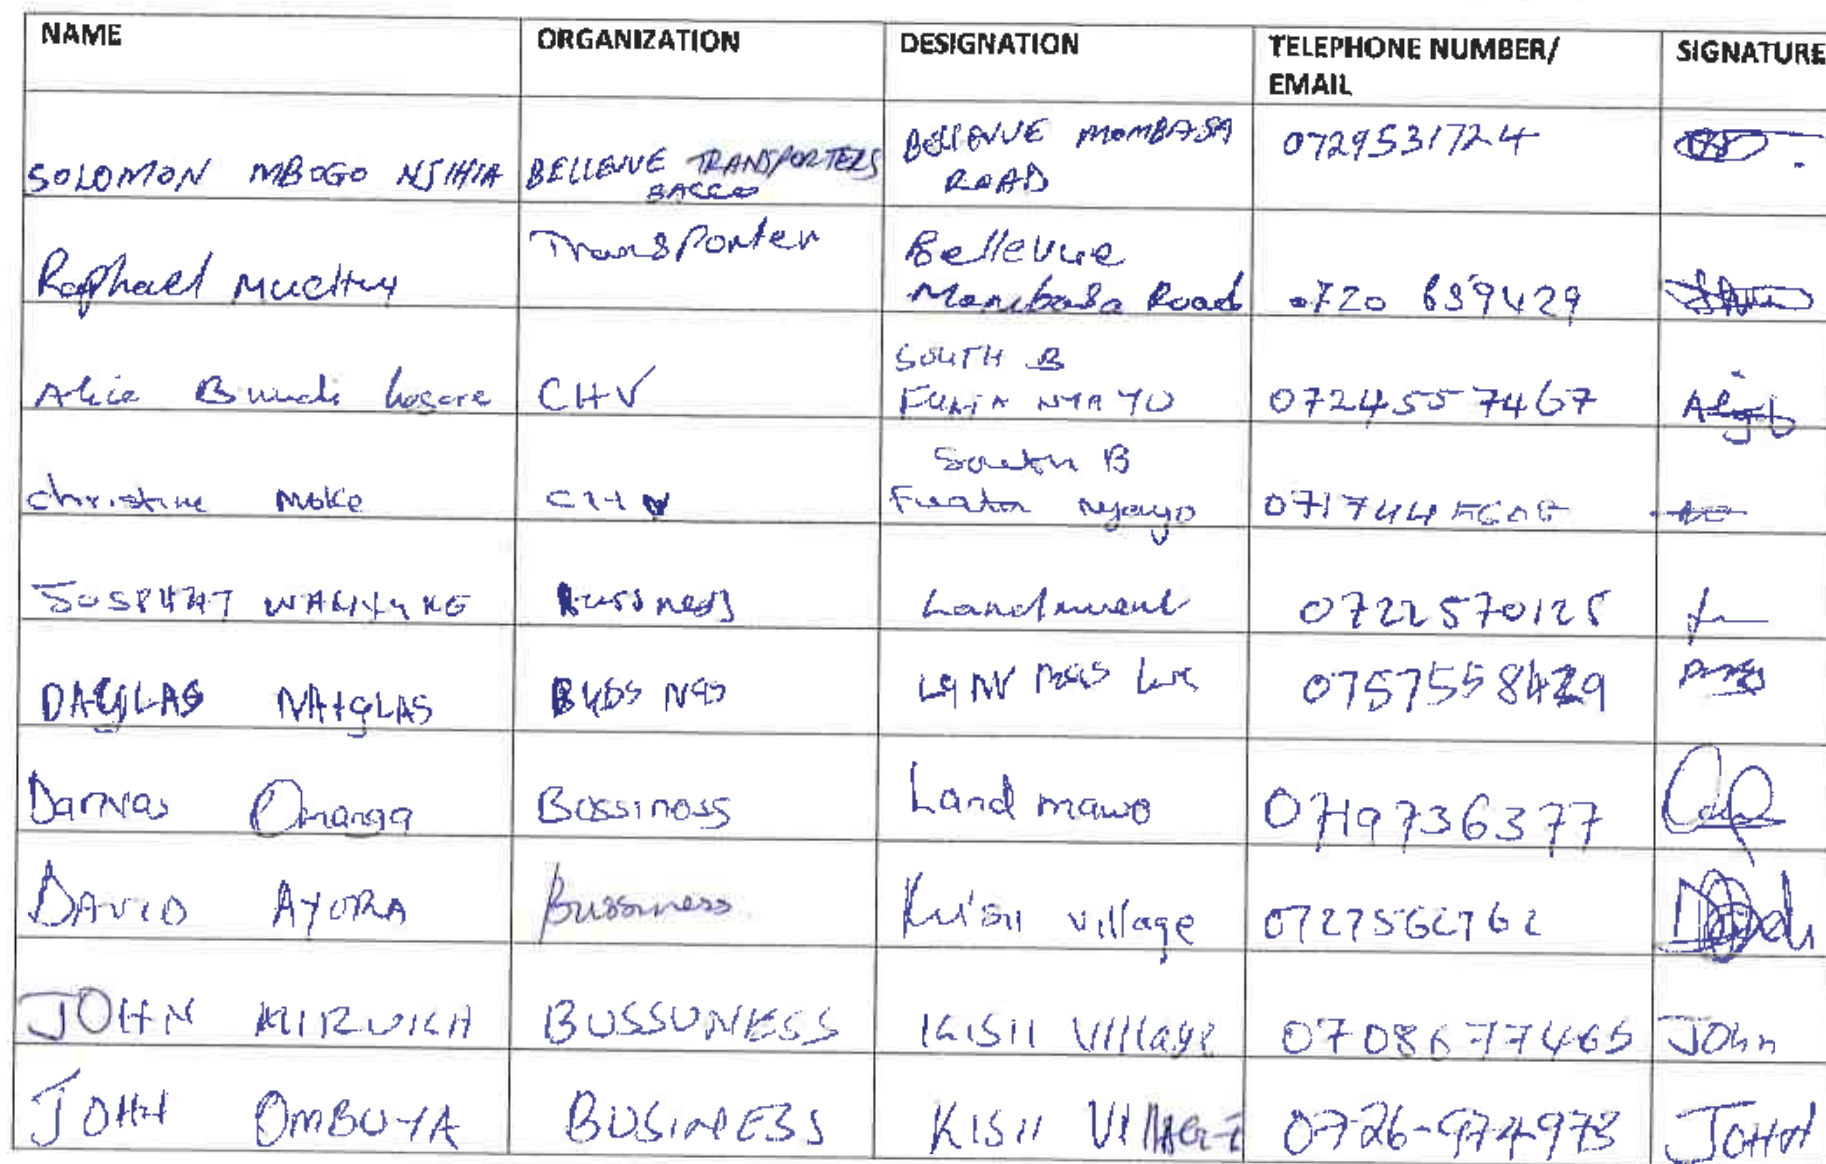 NAME ORGANIZATION DESIGNATION TELEPHONE NUMBER/ EMAIL SIGNATURE
SOLOMON MBOGO NJIHIA BELLEVUE TRANSPORTERS SACCO BELLEVUE MOMBASA ROAD 0729531724
Raphael Transporter Bellevue Mombasa Road 0720 659429
Alice Bundi CHV SOUTH B FUATA NYAYO 0724557467
Christine Moke CHV South B Fuata Nyayo
JOSPHAT Bussness 0722570125
DAGLAS BUSSNES 0757558429
Onanga Bossinoss Land mawo 0719736377
DAVID AYORA Bussiness Kisii village 0727562762
JOHN BUSSUNESS KISII Village 0708677465 JOhn
JOHN OMBUYA BUSINESS KISII VIllAGE 0726-974973 JOHN